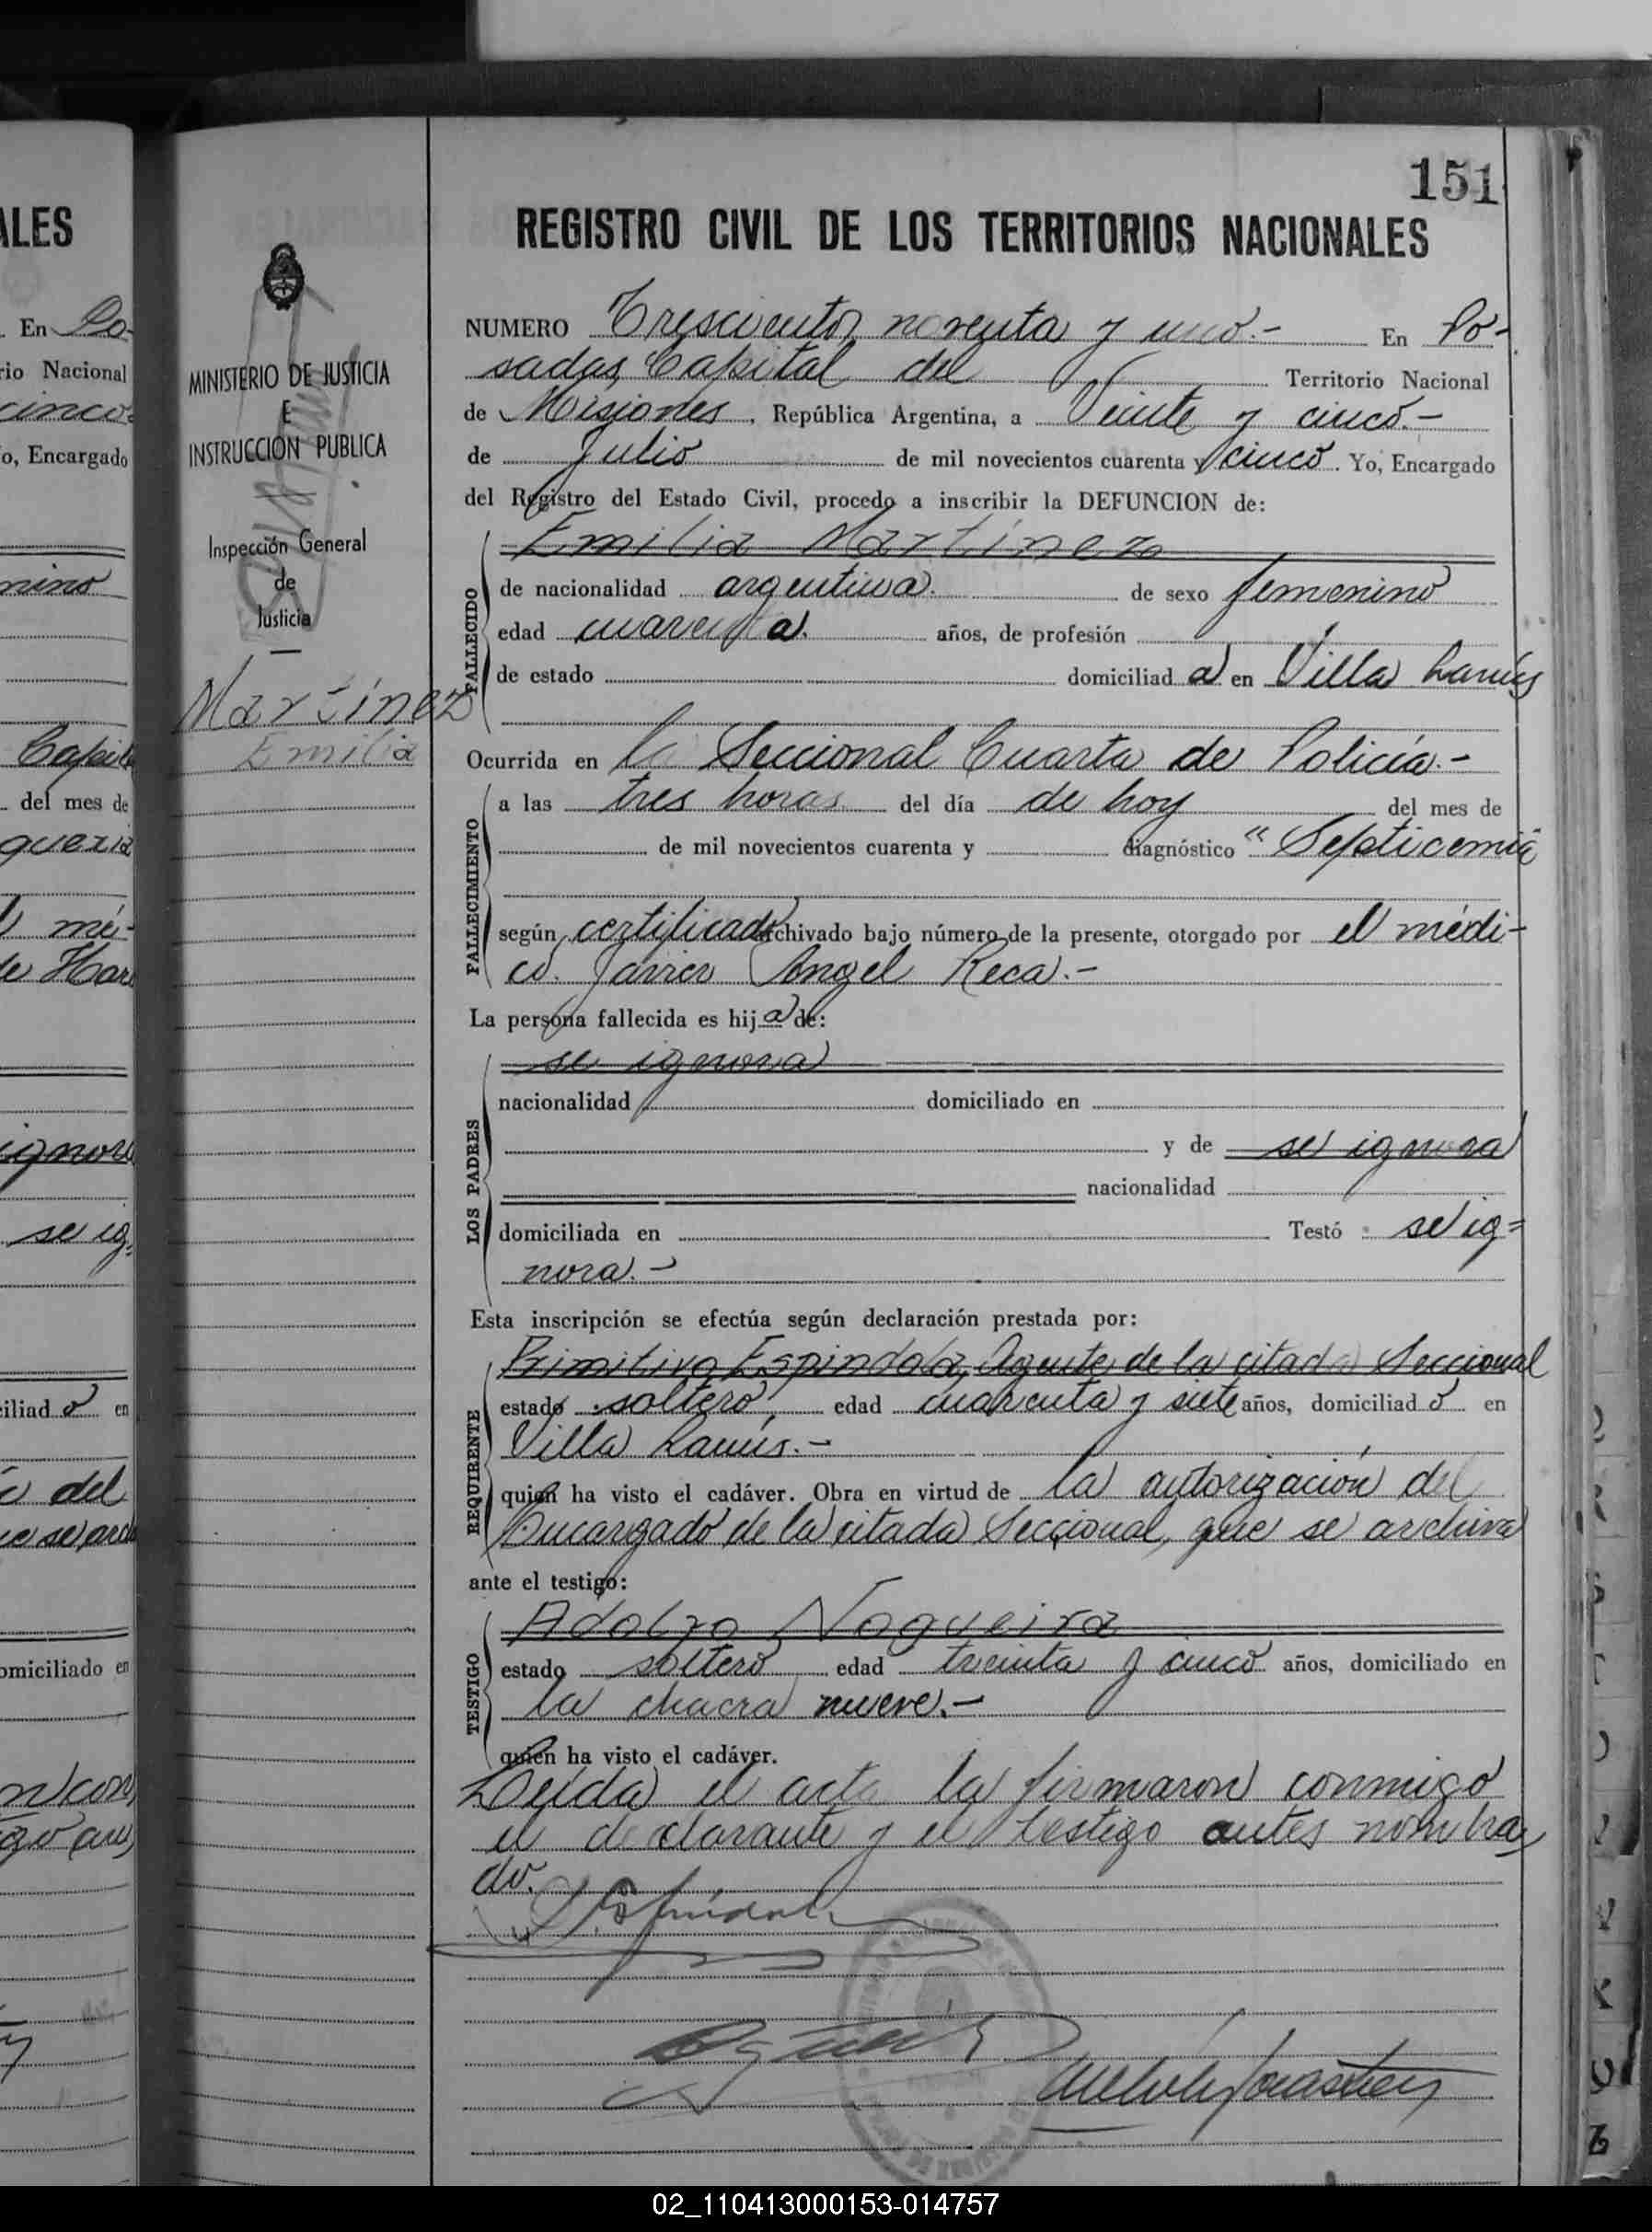 151
REGISTRO CIVIL DE LOS TERRITORIOS NACIONALES
NUMERO Trescientos noventa y uno.- En Po-
sadas, Capital del Territorio Nacional
de Misiones, República Argentina, a Veinte y cinco.-
de Julio de mil novecientos cuarenta y cinco. Yo, Encargado
del Registro del Estado Civil, procedo a inscribir la DEFUNCION de:
FALLECIDO
Emilia Martínez
de nacionalidad argentina. de sexo femenino
edad cuarenta. años, de profesión
de estado domiciliad a en Villa Lanús
Ocurrida en la Seccional Cuarta de Policía.-
FALLECIMIENTO
a las tres horas del día de hoy del mes de
de mil novecientos cuarenta y diagnóstico "Septicemia"
según certificado archivado bajo número de la presente, otorgado por el médi-
co. Javier Angel Reca.-
La persona fallecida es hija de:
LOS PADRES
se ignora
nacionalidad domiciliado en
y de se ignora
nacionalidad
domiciliada en Testó se ig=
nora.-
Esta inscripción se efectúa según declaración prestada por:
REQUIRENTE
Primitivo Espindola, Agente de la citada Seccional
estado soltero, edad cuarenta y siete años, domiciliad o en
Villa Lanús.-
quien ha visto el cadáver. Obra en virtud de la autorización del
Encargado de la citada Seccional, que se archiva
ante el testigo:
TESTIGO
Adolfo Nogueira
estado soltero edad treinta y cinco años, domiciliado en
la chacra nueve.-
quien ha visto el cadáver.
Leída el acta la firmaron conmigo
el declarante y el testigo antes nombra
do.
MINISTERIO DE JUSTICIA
E
INSTRUCCION PUBLICA
Inspección General
de
Justicia
Martínez
Emilia
ALES
En Po-
rio Nacional
cinco.
o, Encargado
nino
Capit
del mes de
queria
mé-
de Har
ignora
se ig
iliad o en
del
se arch
omiciliado en
02_110413000153-014757